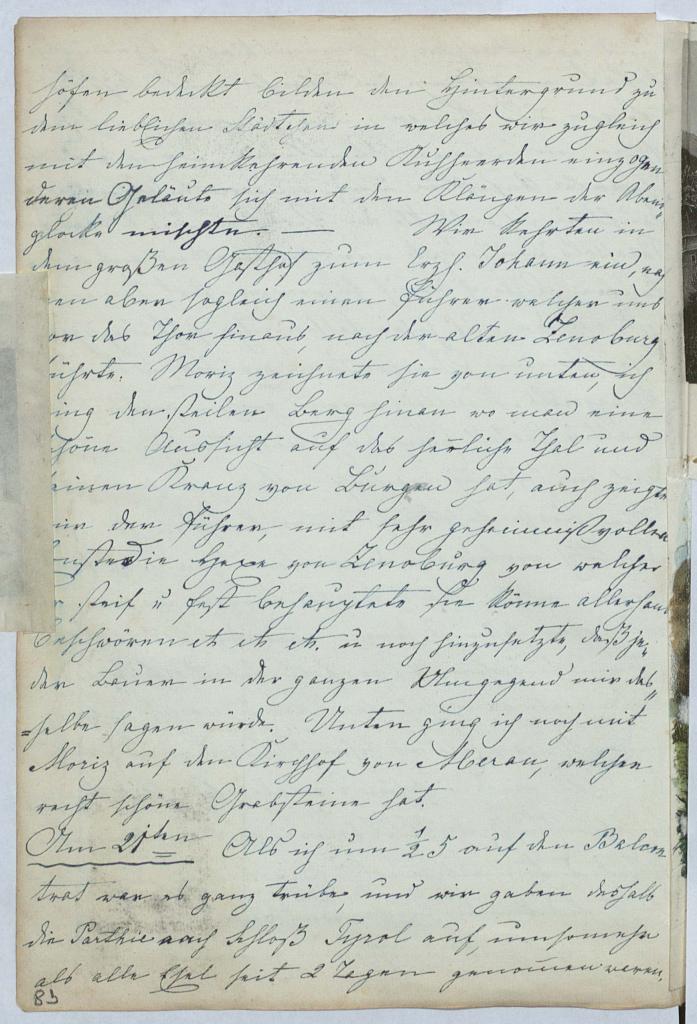 höfen bedeckt bilden den Hintergrund zu
dem lieblichen Städtchen in welches wir zugleich
mit den heimkehrenden Kuhheerden einzogen
deren Geläute sich mit den Klängen der Abend„
glocke mischte. — Wir kehrten in
dem großen Gasthof zum Erzh. Johann ein,
en aber sogleich einen Führer welcher uns
or das Thor hinaus, nach der alten Zenoburg
ührte. Moriz zeichnete sie von unten, ich
ing den steilen Berg hinan wo man eine
höne Aussicht auf das herrliche Thal und
einen Kranz von Burgen hat, auch zeigte
ir der Führer, mit sehr geheimnißvollen
nste die Hexe von Zenoburg von welcher
r steif u fest behauptete sie könne allerhand
beschwören etc etc etc. u noch hinzusetzte, daß je„
der Bauer in der ganzen Umgegend mir das„
=selbe sagen würde. Unten ging ich noch mit
Moriz auf den Kirchhof von Meran, welcher
recht schöne Grabsteine hat.
Am 21ten Als ich um ½ 5 auf den Balcon
trat war es ganz trübe, und wir gaben deshalb
die Parthie nach Schloß Tyrol auf, umsomehr
als alle Esel seit 2 Tagen genommen waren.
83